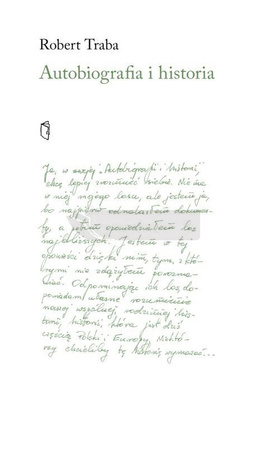 Robert Traba
Autobiografia i historia
Ja, w swojej "Autobiografii i historii,"
chcę lepiej zrozumieć siebie. Nie ma
w niej mojego losu, ale jestem ja,
bo najpierw odnalazłem dokumen-
ty, a potem opowiedziałem los
najbliższych. Jestem w tej
opowieści dzięki nim, tym, z któ-
rymi nie zdążyłem porozma-
wiać. Odpominając ich los, do-
powiadam własne rozumienie
naszej wspólnej, rodzinnej his-
torii, historii, która jest dziś
częścią Polski i Europy. Niektó-
rzy chcieliby tę historię wymazać...